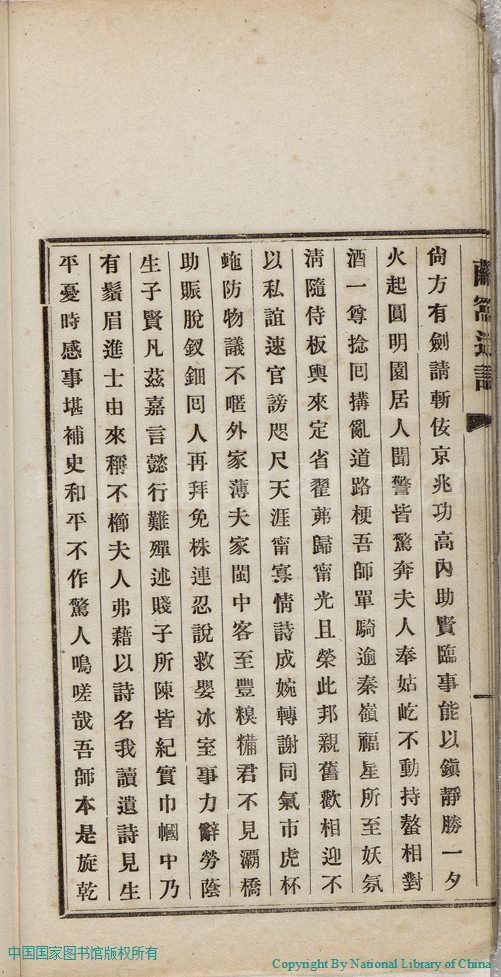 尙方有劍請斬佞京兆功高內助賢臨事能以鎭靜勝一夕
火起圓明園居人聞警皆驚奔夫人奉姑屹不動持螯相對
酒一尊捻囘搆亂道路梗吾師單騎逾秦嶺福星所至妖氛
淸隨侍板輿來定省翟茀歸甯光且榮此邦親舊歡相迎不
以私誼速官謗咫尺天涯甯寡情詩成婉轉謝同氣市虎杯
虵防物議不暱外家薄夫家閩中客至豐糗糒君不見灞橋
助賑脫釵鈿囘人再拜免株連忍說救嬰冰室事力辭勞蔭
生子賢凡茲嘉言懿行難殫述賤子所陳皆紀實巾幗中乃
有鬚眉進士由來稱不櫛夫人弗藉以詩名我讀遺詩見生
平憂時感事堪補史和平不作驚人鳴嗟哉吾師本是旋乾
中国国家图书馆版权所有
Copyright By National Library of China